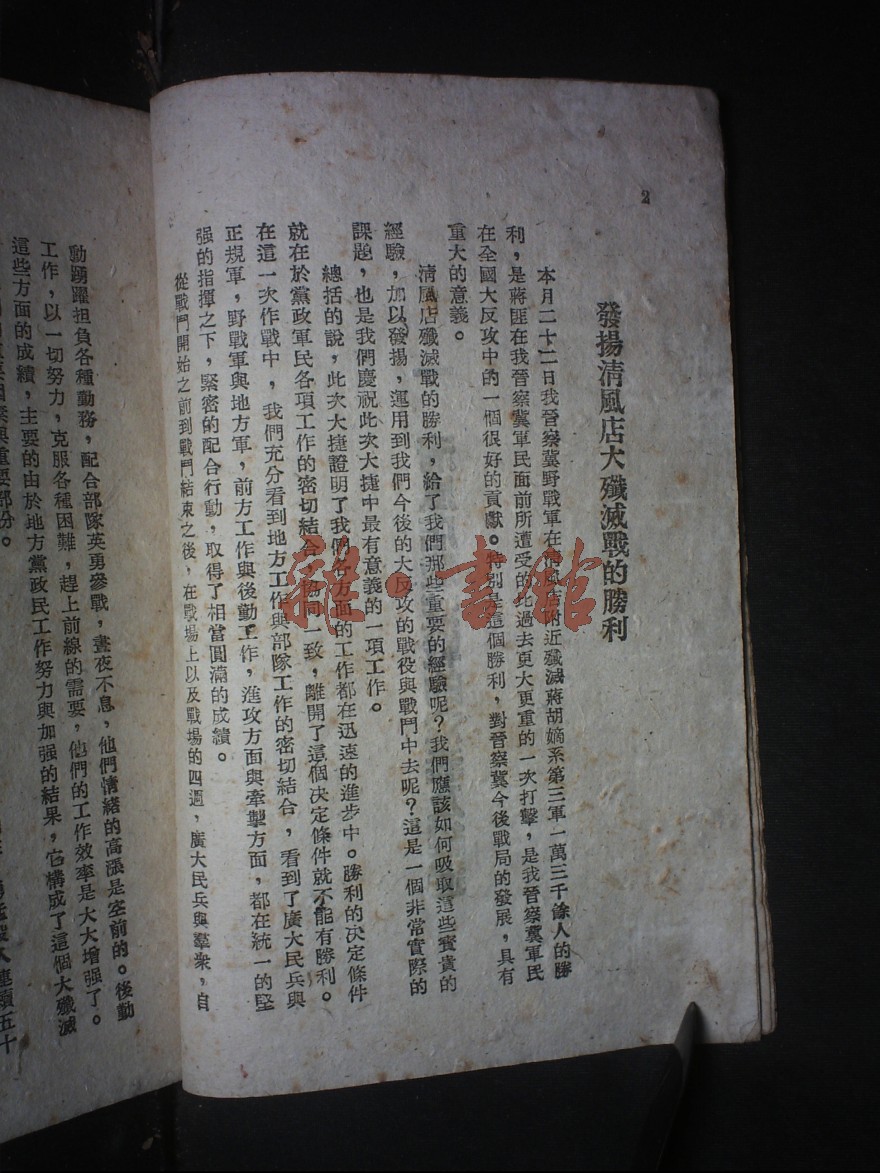 2
發揚清風店大殲滅戰的勝利
本月二十二日我晉察冀野戰軍在清風店附近殲滅蔣胡嫡系第三軍一萬三千餘人的勝
利，是蔣匪在我晉察冀軍民面前所遭受的比過去更大更重的一次打擊，是我晉察冀軍民
在全國大反攻中的一個很好的貢獻。特別是這個勝利，對晉察冀今後戰局的發展，具有
重大的意義。
清風店殲滅戰的勝利，給了我們那些重要的經驗呢？我們應該如何吸取這些寶貴的
經驗，加以發揚，運用到我們今後的大反攻的戰役與戰鬥中去呢？這是一個非常實際的
課題，也是我們慶祝此次大捷中最有意義的一項工作。
總括的說，此次大捷證明了我們各方面的工作都在迅速的進步中。勝利的決定條件
就在於黨政軍民各項工作的密切結合，協同一致，離開了這個決定條件就不能有勝利。
在這一次作戰中，我們充分看到地方工作與部隊工作的密切結合，看到了廣大民兵與
正規軍，野戰軍與地方軍，前方工作與後勤工作，進攻方面與牽掣方面，都在統一的堅
强的指揮之下，緊密的配合行動，取得了相當圓滿的成績。
從戰鬥開始之前到戰鬥結束之後，在戰場上以及戰場的四週，廣大民兵與羣衆，自
動踴躍担負各種勤務，配合部隊英勇參戰，晝夜不息，他們情緒的高漲是空前的。後勤
工作，以一切努力，克服各種困難，趕上前線的需要，他們的工作效率是大大增强了。
這些方面的成績，主要的由於地方黨政民工作努力與加强的結果，它構成了這個大殲滅
與重要部份。
連續五十
雜·書館